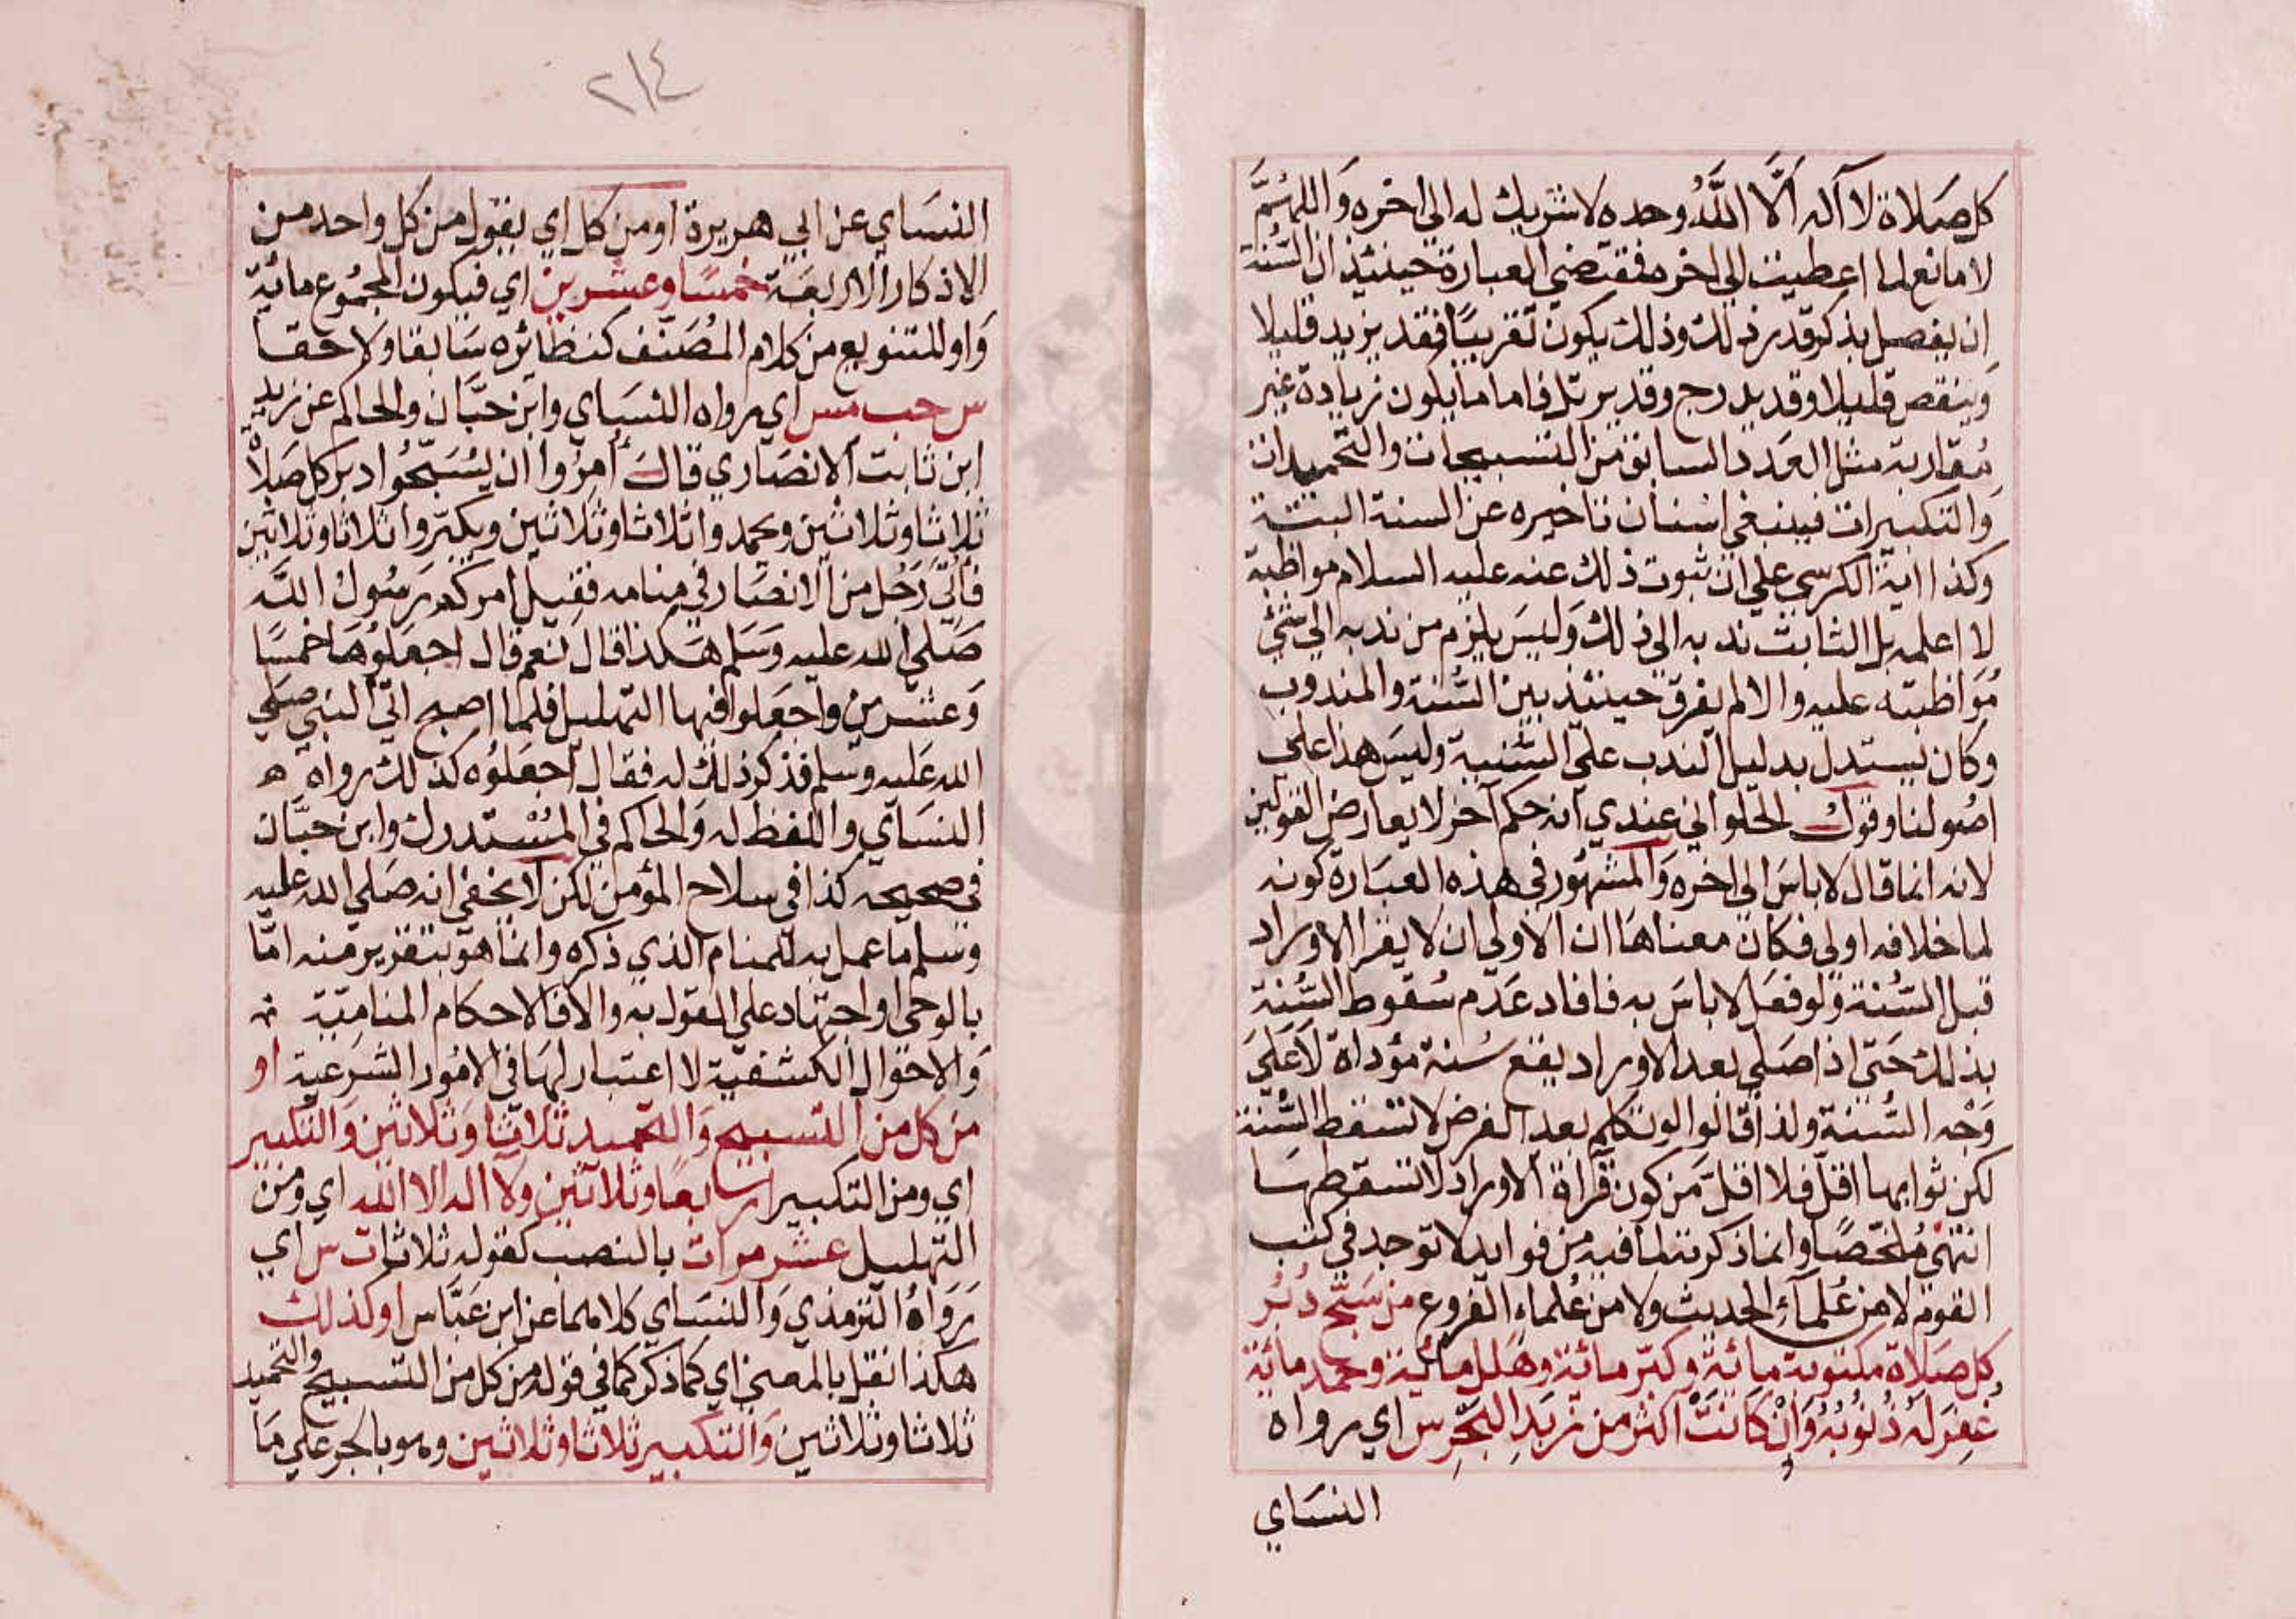 كل صلاة لا اله الا الله وحده لا شريك له الى اخره واللهم
لا مانع لما اعطيت الى اخره فمقتضى العبارة حينئذ ان السنة
ان يفصل بذكر قدر ذلك وذلك يكون تقريبا فقد يزيد قليلا
وينقص قليلا وقد يدرج وقد يرتل فاما ما يكون زيادة غير
مقاربة مثل العدد السابق من التسبيحات والتحميدات
والتكبيرات فينبغي استنان تاخيره عن السنة البتة
وكذا اية الكرسي على ان ثبوت ذلك عنه عليه السلام مواظبة
لا اعلمه بل الثابت ندبه الى ذلك وليس يلزم من ندبه الى شئ
مواظبته عليه والا لم يفرق حينئذ بين السنة والمندوب
وكان يستدل بدليل الندب على السنية وليس هذا على
اصولنا وقول الحلواني عندي انه حكم آخر لا يعارض القولين
لانه انما قال لا باس الى اخره والمشهور في هذه العبارة كونه
لما خلافه اولى فكان معناها ان الاولى ان لا يقرا الاوراد
قبل السنة ولو فعل لا باس به فافاد عدم سقوط السنة
بذلك حتى اذا صلى بعد الاوراد يقع سنة مؤداة لا على
وجه السنة ولذا قالوا لو تكلم بعد الفرض لا تسقط السنة
لكن ثوابها اقل فلا اقل من كون قراة الاوراد لا تسقطها
انتهى ملخصا وانما ذكرته لما فيه من فوايد لا توجد في كتب
القوم لا من علماء الحديث ولا من علماء الفروع من سبح دبر
كل صلاة مكتوبة مائة وكبر مائة وهلل مائة وحمد مائة
غفر له ذنوبه وان كانت اكثر من زبد البحر س اي رواه
النساي
٢١٤
النساي عن ابي هريرة او من كل اي يقول من كل واحد من
الاذكار الاربعة خمسا وعشرين اي فيكون المجموع مائة
واو للتنويع من كلام المصنف كنظائره سابقا ولاحقا
س حب مس اي رواه النساي وابن حبان والحاكم عن زيد
ابن ثابت الانصاري قال أمروا ان يسبحوا دبر كل صلاة
ثلاثا وثلاثين ويحمدوا ثلاثا وثلاثين ويكبروا ثلاثا وثلاثين
فأتي رجل من الانصار في منامه فقيل امركم رسول الله
صلى الله عليه وسلم هكذا قال نعم قال اجعلوها خمسا
وعشرين واجعلوا فيها التهليل فلما اصبح اتى النبي صلى
الله عليه وسلم فذكر ذلك له فقال اجعلوه كذلك رواه ه
النساي واللفظ له والحاكم في المستدرك وابن حبان
في صحيحه كذا في سلاح المؤمن لكن لا يخفى انه صلى الله عليه
وسلم ما عمل به للمنام الذي ذكره وانما هو بتقرير منه اما
بالوحى او اجتهاد على القول به والا فالاحكام المنامية
والاحوال الكشفية لا اعتبار لها في الامور الشرعية او
من كل من التسبيح والتحميد ثلاثا وثلاثين والتكبير
اي ومن التكبير اربعا وثلاثين ولا اله الا الله اي ومن
التهليل عشر مرات بالنصب كقوله ثلاثا ت س اي
رواه الترمذي والنساي كلاهما عن ابن عباس او كذلك
هكذا نقل بالمعنى اي كما ذكر كما في قوله من كل من التسبيح والتحميد
ثلاثا وثلاثين والتكبير ثلاثا وثلاثين وهو بالجر على ما